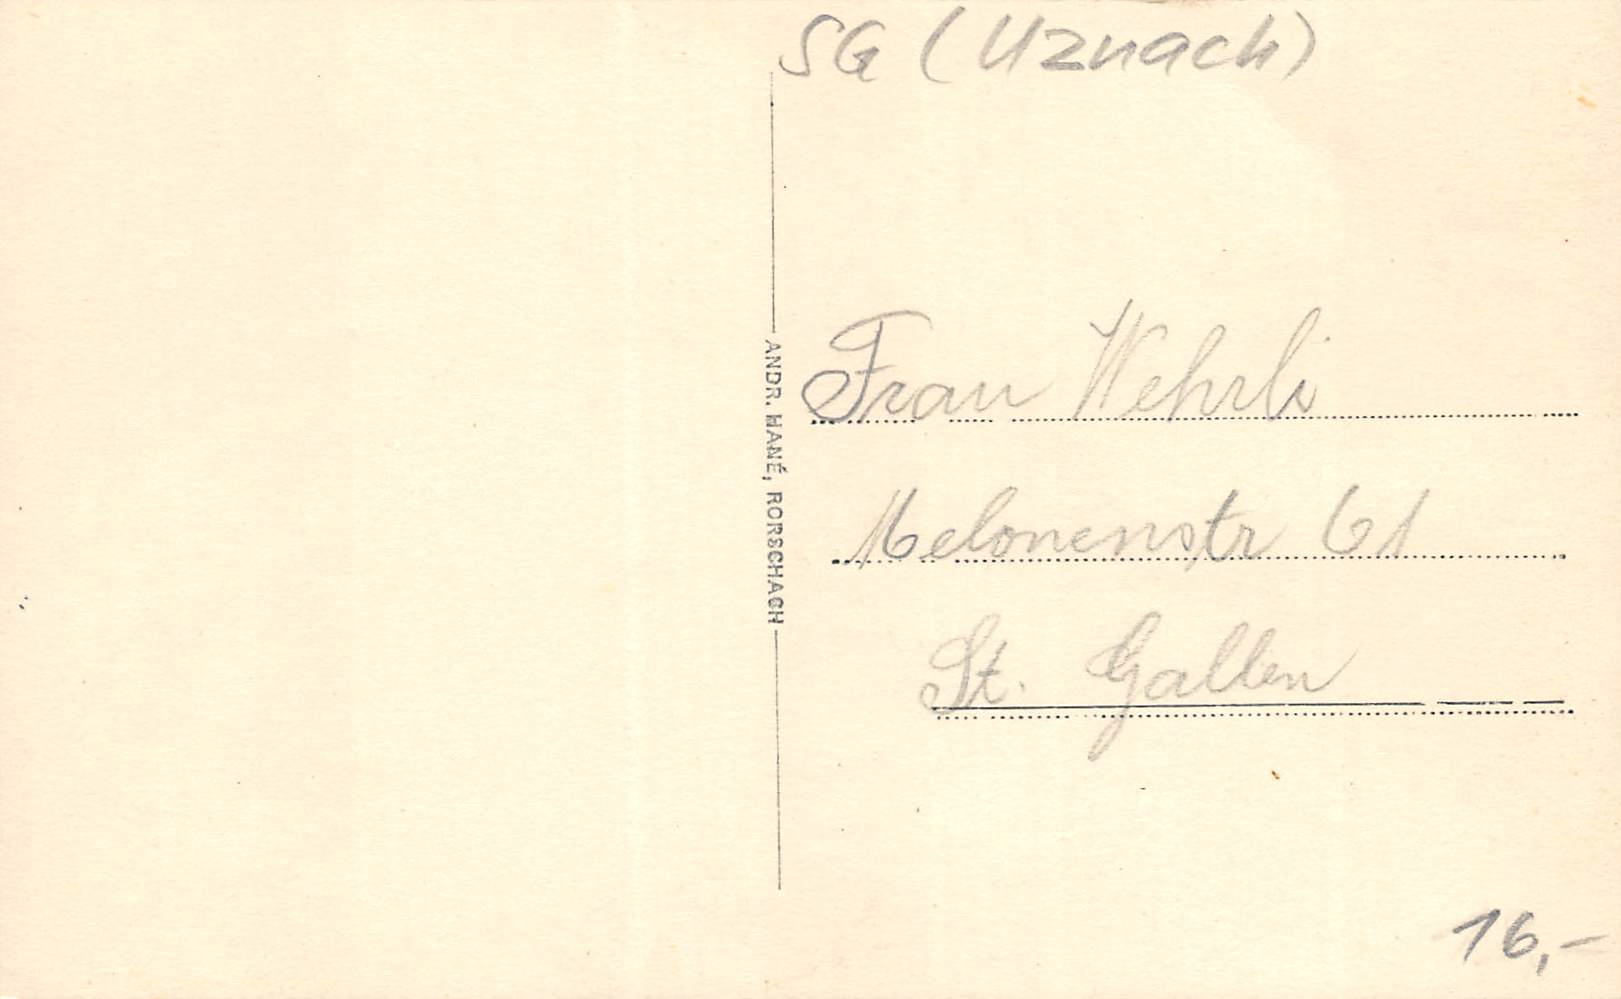 SG (Uznach)
ANDR. HANÉ, RORSCHACH
Frau Wehrli
Melonenstr 61
St. Gallen
16,-